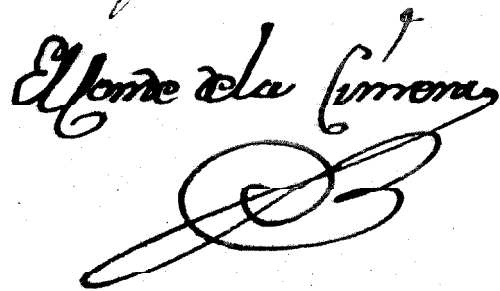 El Conde dela Cimera